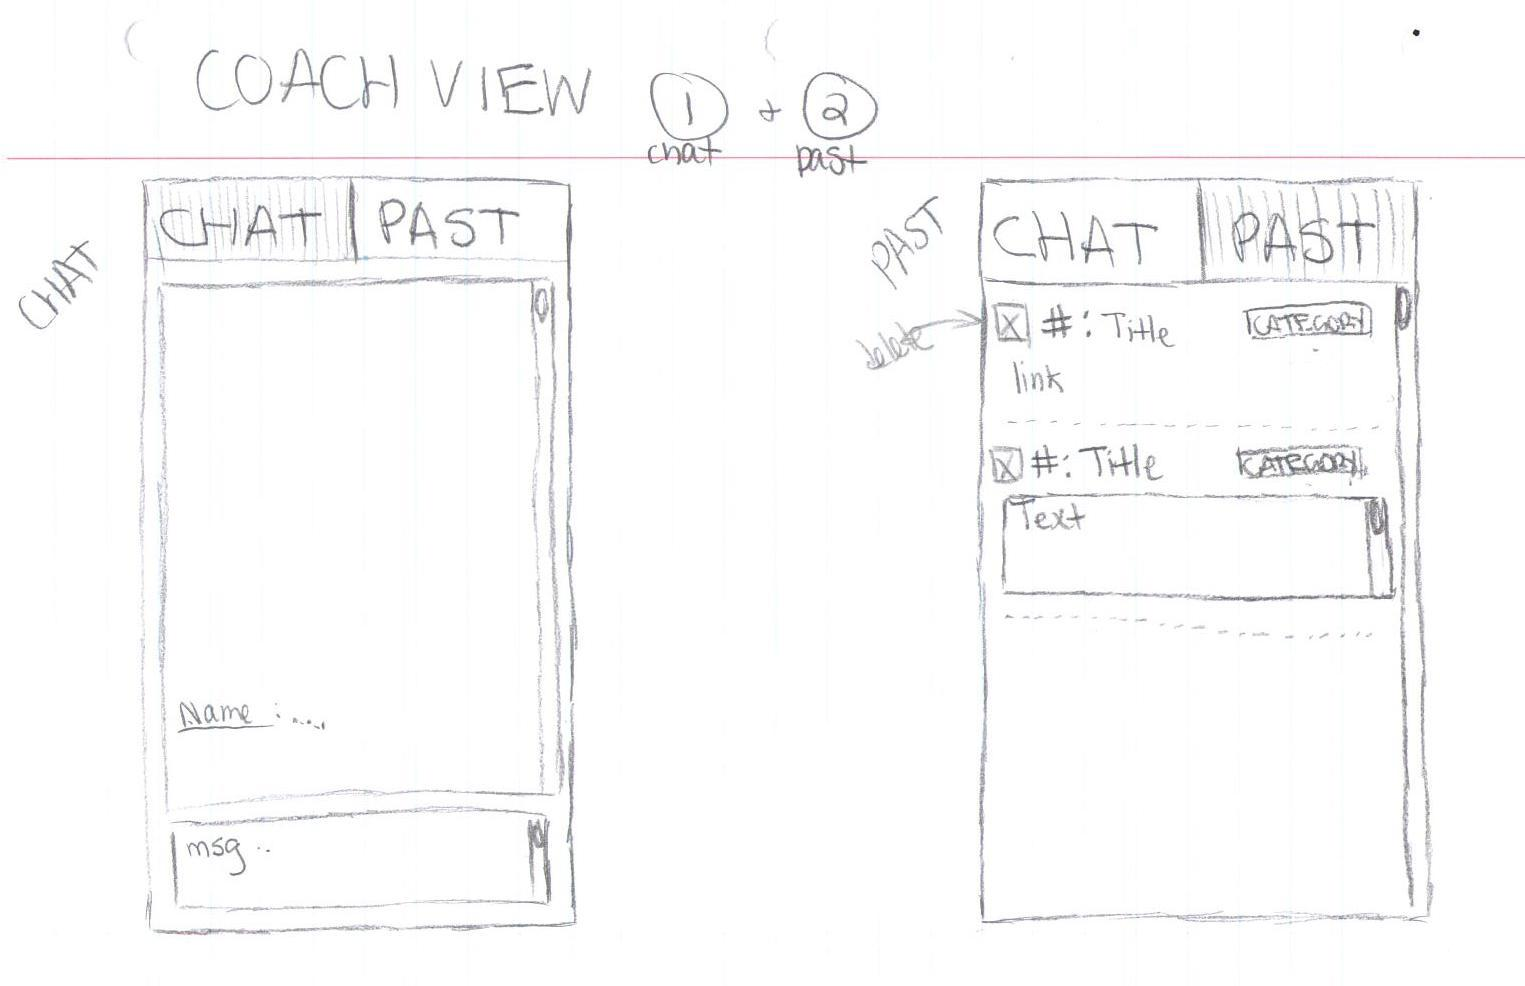 COACH VIEW 1 + 2
chat past
CHAT
CHAT PAST
Name : ....
msg ..
PAST
delete
CHAT PAST
X #: Title CATEGORY
link
X #: Title CATEGORY
Text